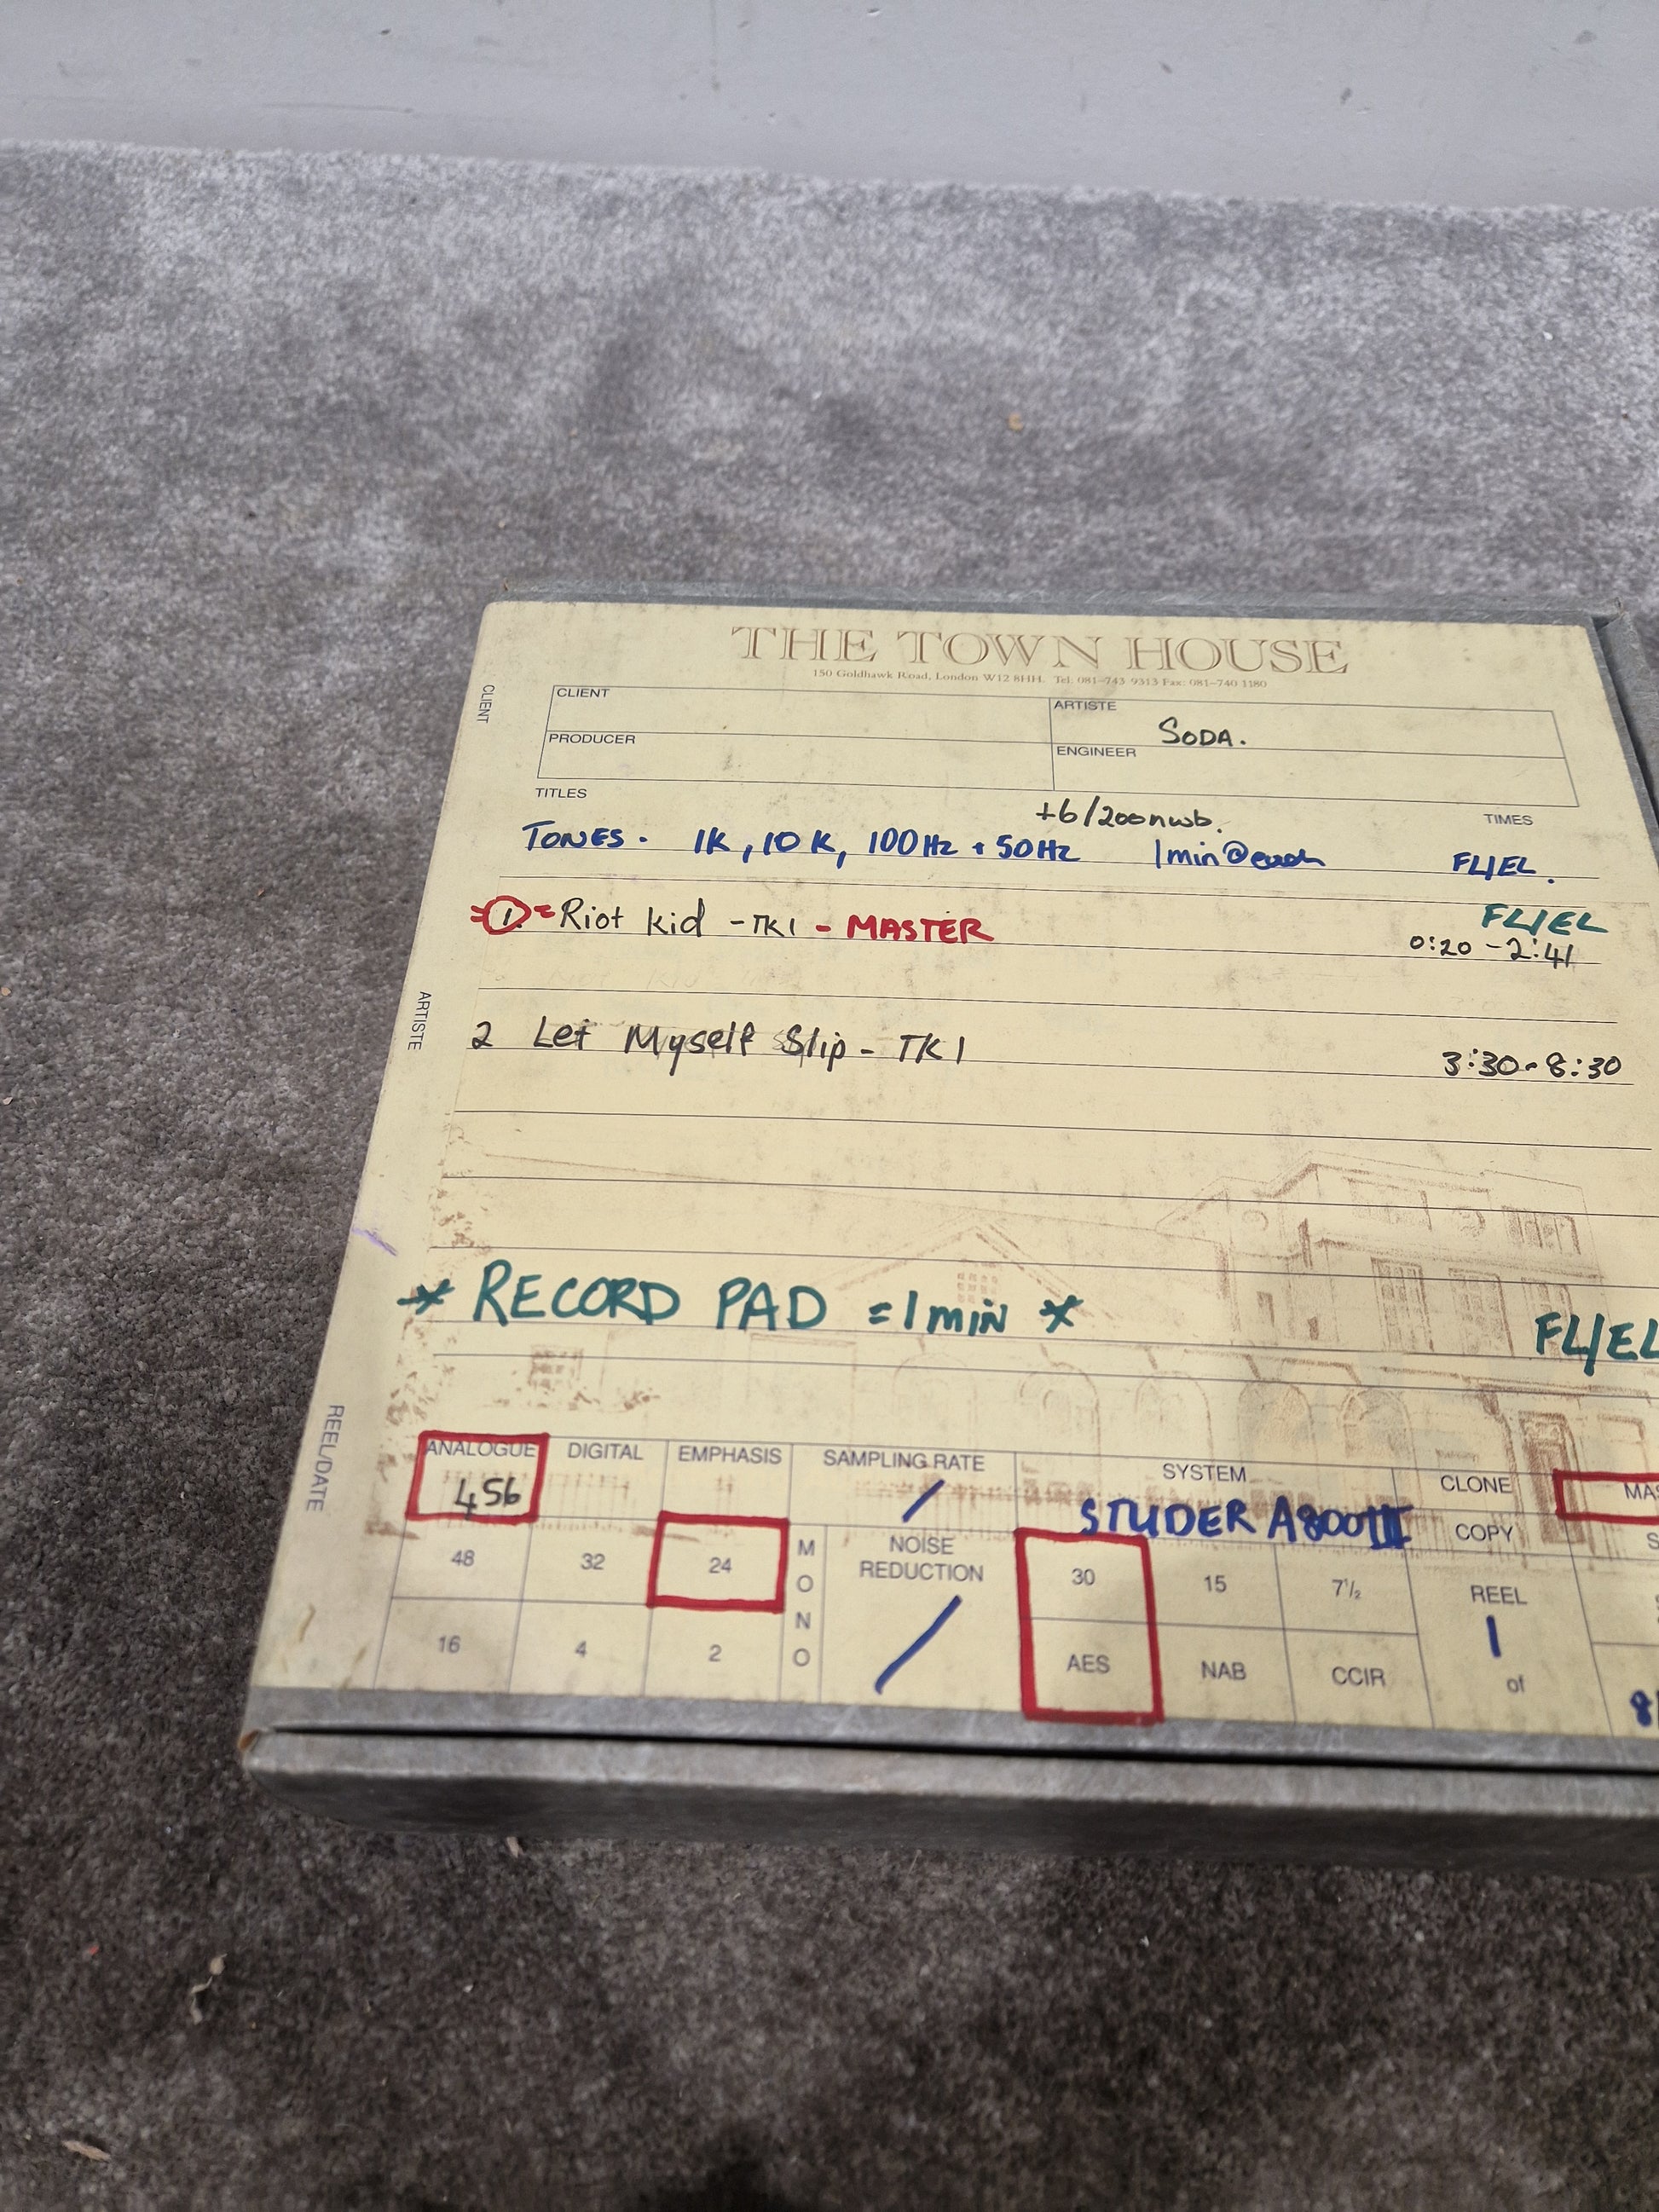 THE TOWN HOUSE
150 Goldhawk Road, London W12 8HH. Tel: 081-743 9313 Fax: 081-740 1180
CLIENT
CLIENT
ARTISTE
SODA.
PRODUCER
ENGINEER
TITLES
+6/200nwb.
TIMES
TONES. 1K, 10K, 100Hz + 50Hz 1min@each FL/EL.
1. Riot kid - TK1 - MASTER
FL/EL
0:20 - 2:41
ARTISTE
2 Let Myself Slip - TK1 3:30 - 8:30
* RECORD PAD = 1 min * FL/EL
REEL/DATE
ANALOGUE DIGITAL EMPHASIS SAMPLING RATE SYSTEM CLONE
456 / STUDER A800III COPY
48 32 24 MONO NOISE REDUCTION 30 15 7½ REEL
/ 1
16 4 2 AES NAB CCIR of